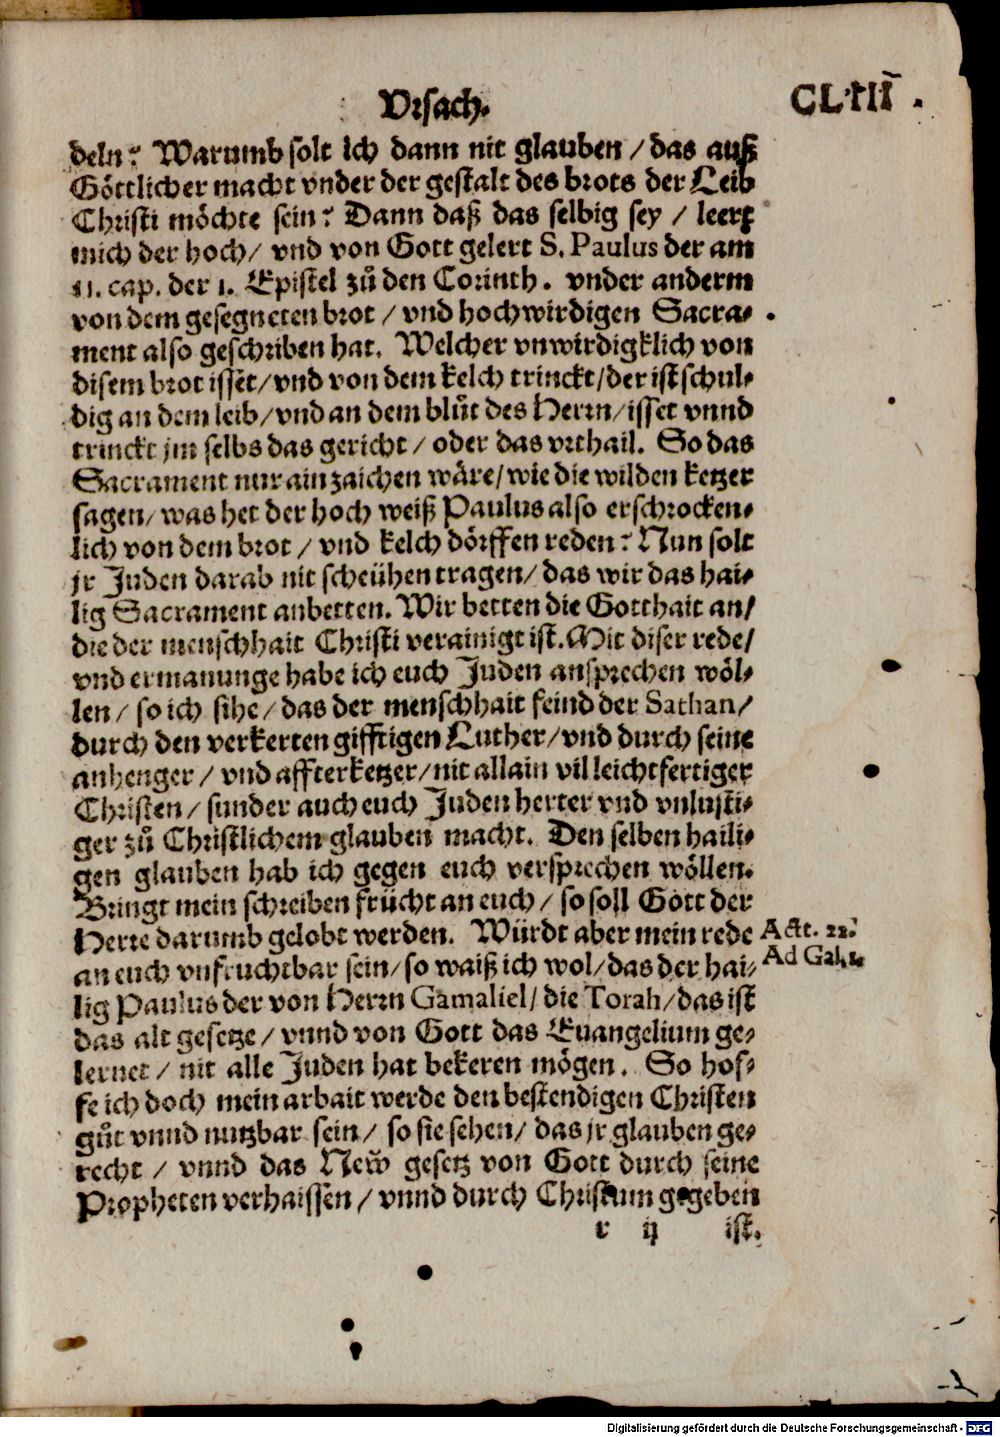 Vrsach.
deln? Warumb solt ich dann nit glauben / das auß
Göttlicher macht vnder der gestalt des brots der Leib
Christi möchte sein? Dann daß das selbig sey / leert
mich der hoch / vnd von Gott gelert S. Paulus der am
11. cap. der 1. Epistel zů den Corinth. vnder anderm
von dem gesegneten brot / vnd hochwirdigen Sacra-
ment also geschriben hat. Welcher vnwirdigklich von
disem brot isset / vnd von dem kelch trinckt / der ist schul-
dig an dem leib / vnd an dem blůt des Herrn / isset vnnd
trinckt jm selbs das gericht / oder das vrthail. So das
Sacrament nur ain zaichen wäre / wie die wilden ketzer
sagen / was het der hoch weiß Paulus also erschrocken-
lich von dem brot / vnd kelch dörffen reden? Nun solt
jr Juden darab nit scheühen tragen / das wir das hai-
lig Sacrament anbetten. Wir betten die Gotthait an /
die der menschhait Christi verainigt ist. Mit diser rede /
vnd ermanunge habe ich euch Juden ansprechen wöl-
len / so ich sihe / das der menschhait feind der Sathan /
durch den verkerten gifftigen Luther / vnd durch seine
anhenger / vnd affterketzer / nit allain vil leichtfertiger
Christen / sunder auch euch Juden herter vnd vnlusti-
ger zů Christlichem glauben macht. Den selben haili-
gen glauben hab ich gegen euch versprechen wöllen.
Bringt mein schreiben frücht an euch / so soll Gott der
Herre darumb gelobt werden. Würdt aber mein rede
Act. 22.
an euch vnfruchtbar sein / so waiß ich wol / das der hai-
Ad Gal. 1.
lig Paulus der von Herrn Gamaliel / die Torah / das ist
das alt gesetze / vnnd von Gott das Euangelium ge-
lernet / nit alle Juden hat bekeren mögen. So hof-
fe ich doch mein arbait werde den bestendigen Christen
gůt vnnd nutzbar sein / so sie sehen / das jr glauben ge-
recht / vnnd das New gesetz von Gott durch seine
Propheten verhaissen / vnnd durch Christum gegeben
r ij ist.
Digitalisierung gefördert durch die Deutsche Forschungsgemeinschaft - DFG